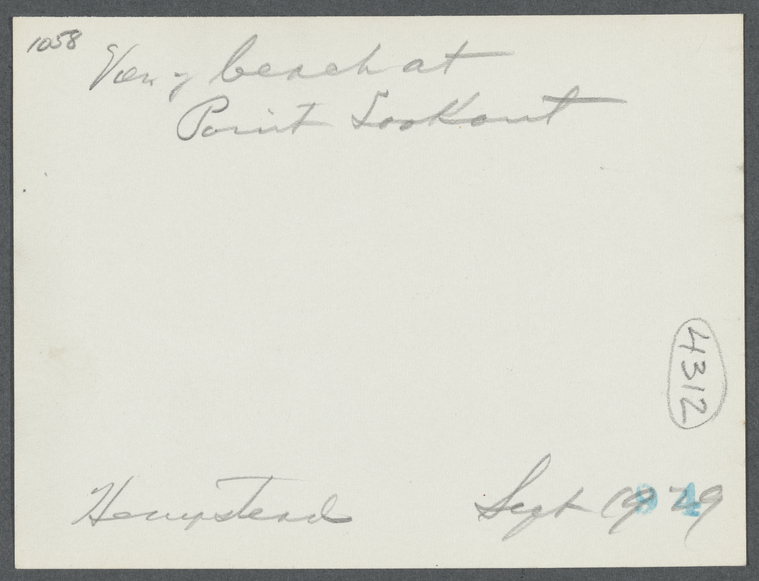 1058
View of beach at
Point Lookout
4312
Hempstead Sept 1929
94